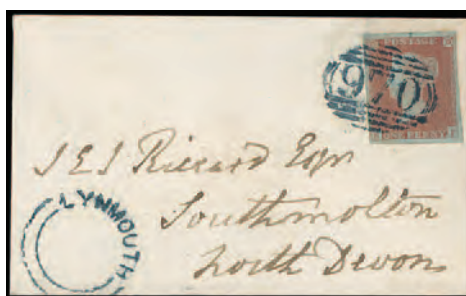 POSTAGE
970
ONE PENNY
J E J Riccard Esqr
Southmolton
North Devon
LYNMOUTH